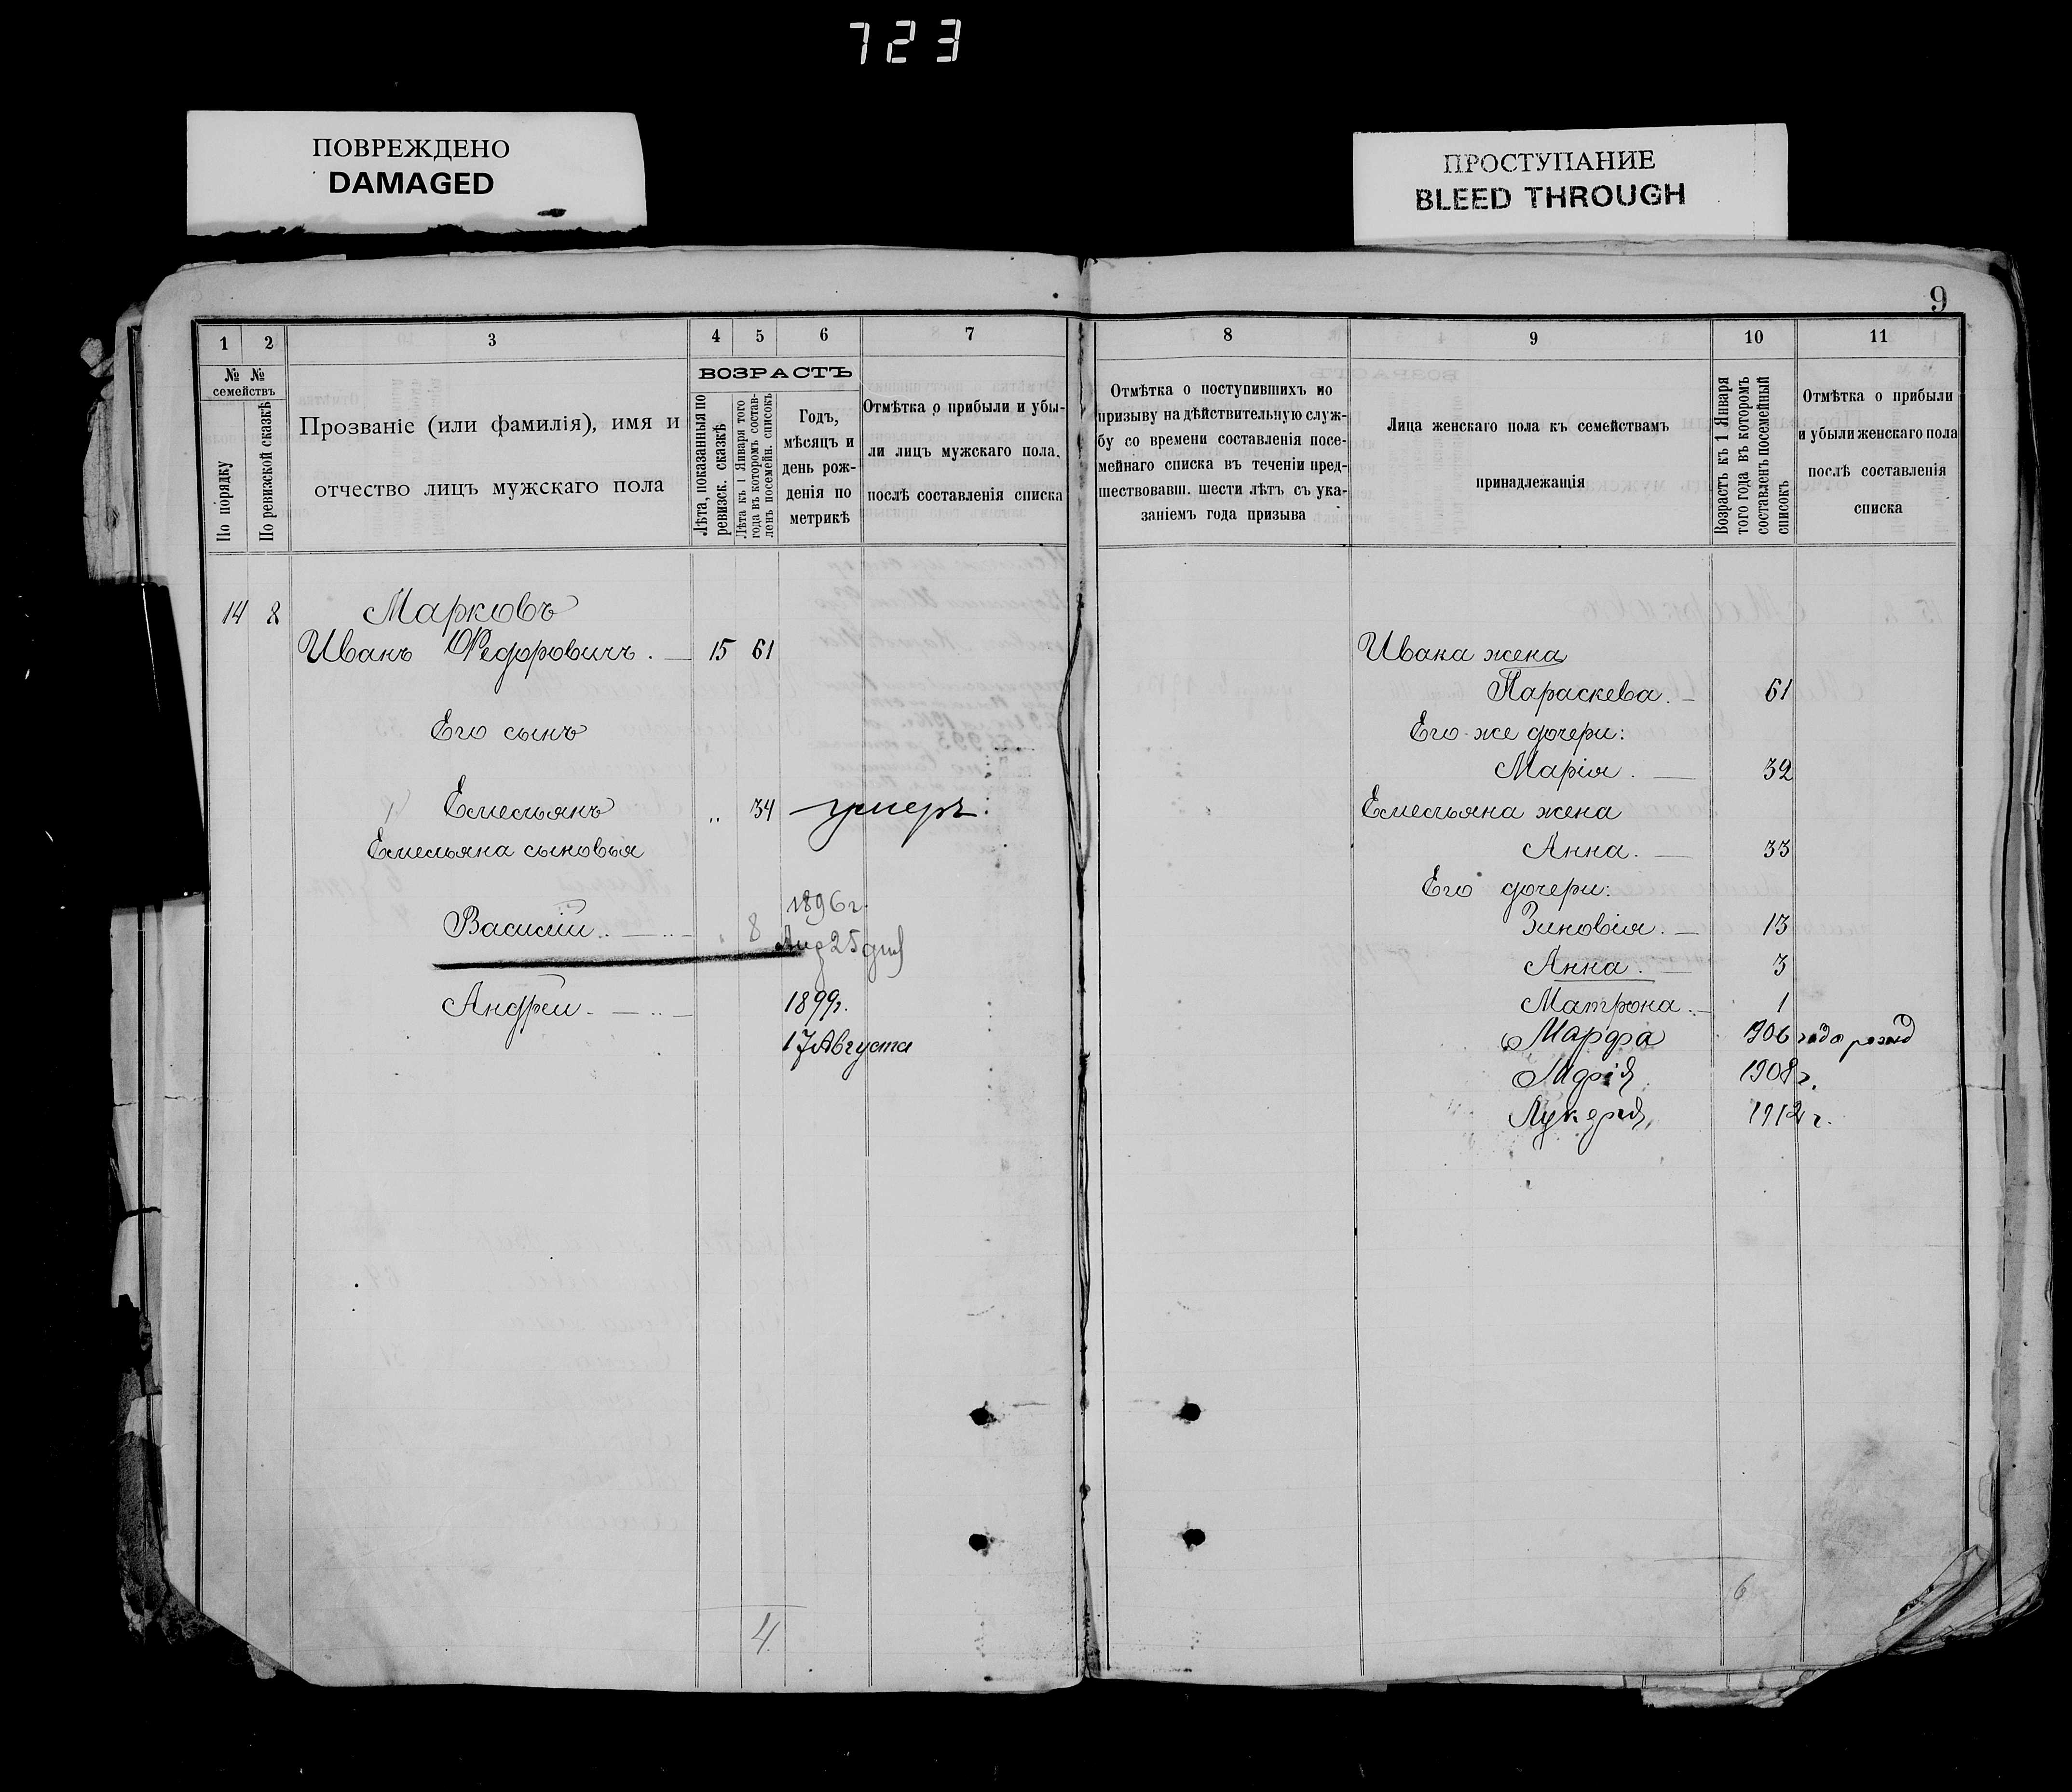 723
ПОВРЕЖДЕНО
DAMAGED
ПРОСТУПАНИЕ
BLEED THROUGH
9
1 2 3 4 5 6 7
№ № семействъ
По порядку
По ревизской сказкѣ
Прозваніе (или фамилія), имя и
отчество лицъ мужскаго пола
ВОЗРАСТЪ
Лѣта, показанныя по
ревизск. сказкѣ
Лѣта къ 1 Января того
года въ которомъ состав-
ленъ посемейн. списокъ
Годъ,
мѣсяцъ и
день рож-
денія по
метрикѣ
Отмѣтка о прибыли и убы-
ли лицъ мужскаго пола,
послѣ составленія списка
14 8 Марковъ
Иванъ Федоровичъ. 15 61
Его сынъ
Емельянъ „ 34 умеръ
Емельяна сыновья
1896 г.
Василій 8
25
Андрей 1899г.
17 Августа
4
8 9 10 11
Отмѣтка о поступившихъ по
призыву на дѣйствительную служ-
бу со времени составленія посе-
мейнаго списка въ теченіи пред-
шествовавш. шести лѣтъ съ ука-
заніемъ года призыва
Лица женскаго пола къ семействамъ
принадлежащія
Возрастъ къ 1 Января
того года въ которомъ
составленъ посемейный
списокъ
Отмѣтка о прибыли
и убыли женскаго пола
послѣ составленія
списка
Ивана жена
Параскева. 61
Его-же дочери:
Марія. 32
Емельяна жена
Анна. 33
Его дочери:
Зиновія. 13
Анна. 3
Матрона. 1
Марфа 1906 года рожд
Марія 1908 г.
Лукерія 1912 г.
6